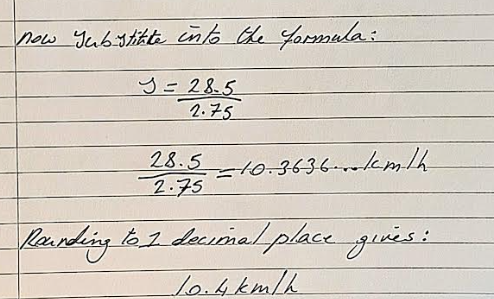 now Substitute into the formula:
S = 28.5
2.75
28.5 = 10.3636... km/h
2.75
Rounding to 1 decimal place gives:
10.4 km/h